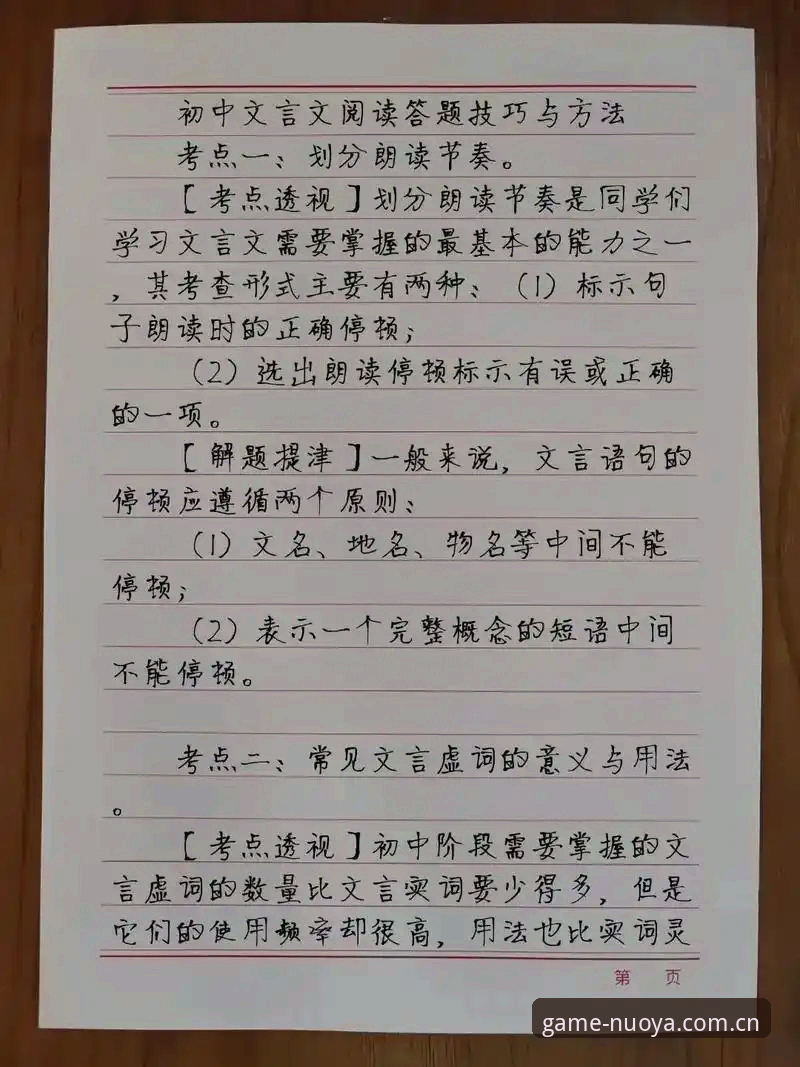 初中文言文阅读答题技巧与方法
考点一：划分朗读节奏。
【考点透视】划分朗读节奏是同学们
学习文言文需要掌握的最基本的能力之一
，其考查形式主要有两种：（1）标示句
子朗读时的正确停顿；
（2）选出朗读停顿标示有误或正确
的一项。
【解题提津】一般来说，文言语句的
停顿应遵循两个原则：
（1）文名、地名、物名等中间不能
停顿；
（2）表示一个完整概念的短语中间
不能停顿。
考点二：常见文言虚词的意义与用法
。
【考点透视】初中阶段需要掌握的文
言虚词的数量比文言实词要少得多，但是
它们的使用频率却很高，用法也比实词灵
第 页
game-nuoya.com.cn